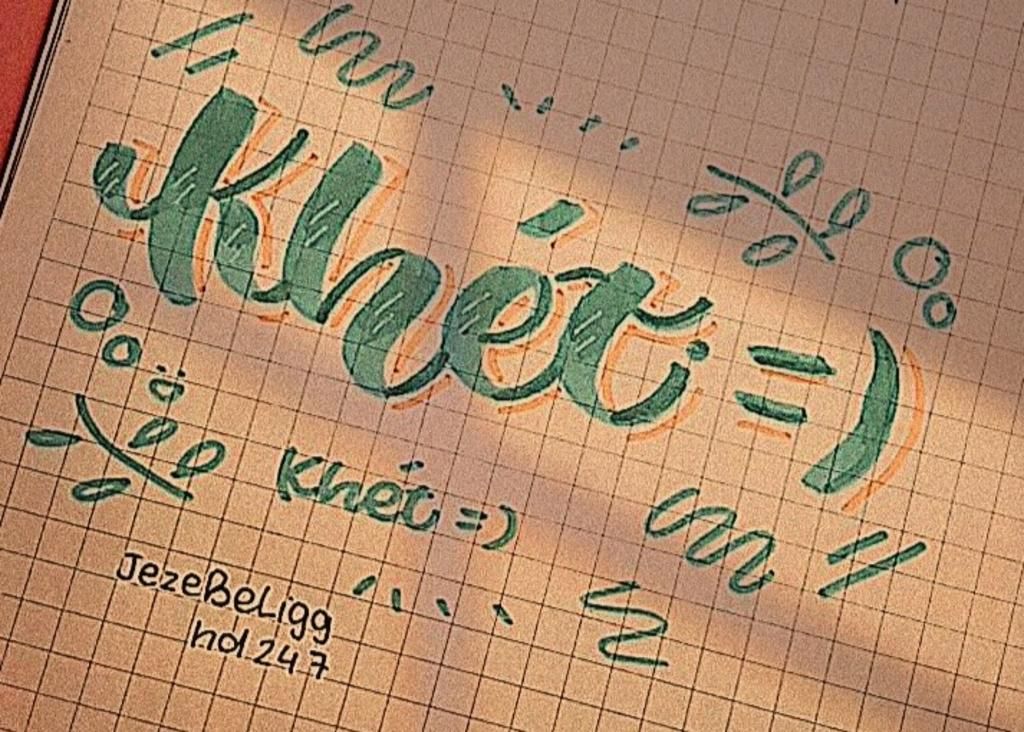 Khét =)
Khét =)
JezeBeLigg
hol247